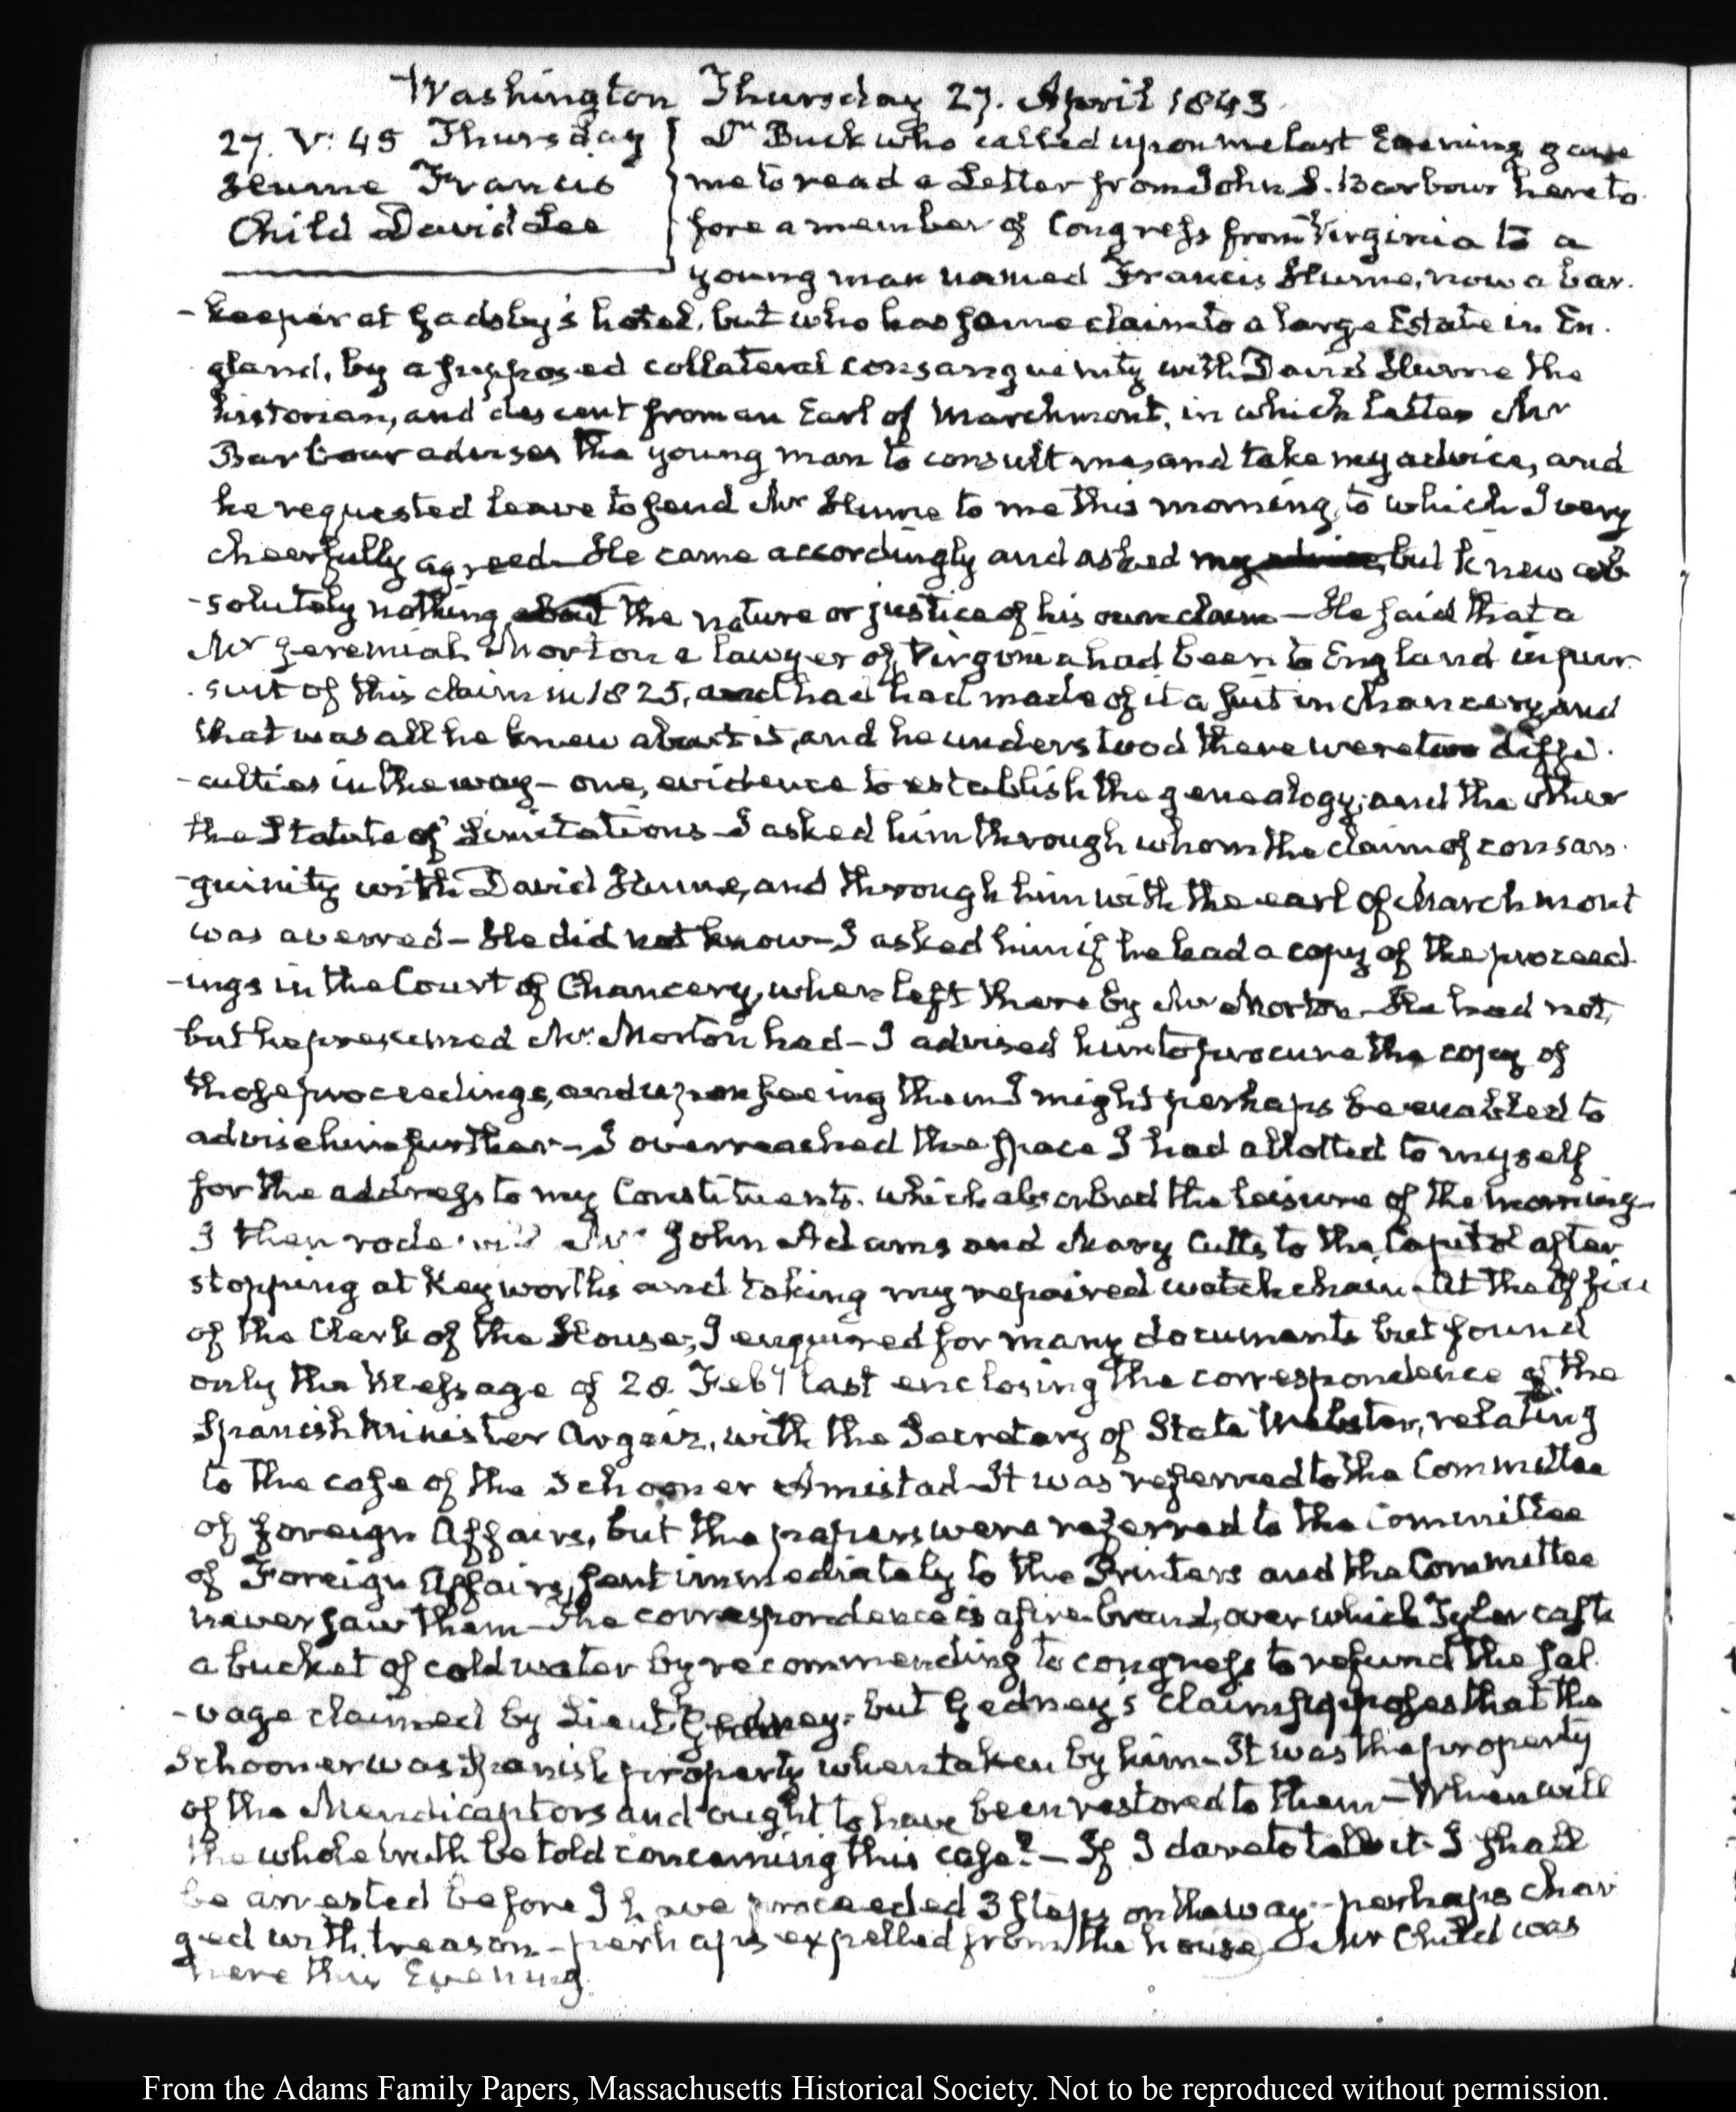 Washington Thursday 27. April 1843
27. V: 45 Thursday
Hume Francis
Child David Lee
Dr Buck who called upon me last Evening gave
me to read a Letter from John S. Barbour hereto
fore a member of Congress from Virginia to a
young man named Francis Hume, now a bar.
-keeper at Gadsby's hotel, but who has some claim to a large Estate in En.
gland, by a supposed collateral consanguinity with David Hume the
historian, and descent from an Earl of Marchmont, in which letter Mr
Barbour advises the young man to consult me, and take my advice, and
he requested leave to send Mr Hume to me this morning, to which I very
cheerfully agreed—He came accordingly and asked my advice, but knew ab
-solutely nothing about the nature or justice of his own claim—He said that a
Mr Jeremiah Morton a lawyer of Virginia had been to England in pur.
suit of this claim in 1825, and had had made of it a suit in chancery, and
that was all he knew about it, and he understood there were two diffi.
-culties in the way—one, evidence to establish the genealogy; and the other
the Statute of Limitations—I asked him through whom the claim of consan.
-guinity with David Hume, and through him with the earl of Marchmont
was averred—He did not know—I asked him if he had a copy of the proceed
-ings in the Court of Chancery, when left there by Mr Morton—He had not,
but he presumed Mr. Morton had—I advised him to procure the copy of
those proceedings, and upon seeing them I might perhaps be enabled to
advise him further—I overreached the space I had allotted to myself
for the address to my Constituents. which absorbed the leisure of the morning—
I then rode with Mrs John Adams and Mary Cutts, to the Capitol after
stopping at Keyworth's and taking my repaired watch chain—At the Office
of the Clerk of the House, I enquired for many documents but found
only the Message of 28. Feby last enclosing the correspondence of the
Spanish Minister Argaiz, with the Secretary of State Webster, relating
to the case of the Schooner Amistad—It was referred to the Committee
of foreign Affairs, but the papers were referred to the Committee
of Foreign Affairs, sent immediately to the Printers and the Committee
never saw them—The correspondence is a fire-brand, over which Tyler casts
a bucket of cold water by recommending to congress to refund the sal.
-vage claimed by Lieutt Gedney—but Gedney's claim supposes that the
Schooner was Spanish property when taken by him—It was the property
of the Mendi captors and ought to have been restored to them—When will
the whole truth be told concerning this case?—If I dare to tell it I shall
be arrested before I have proceeded 3 steps on the way—perhaps char
ged with treason—perhaps expelled from the house—Mr Child was
here this Evening.
From the Adams Family Papers, Massachusetts Historical Society. Not to be reproduced without permission.